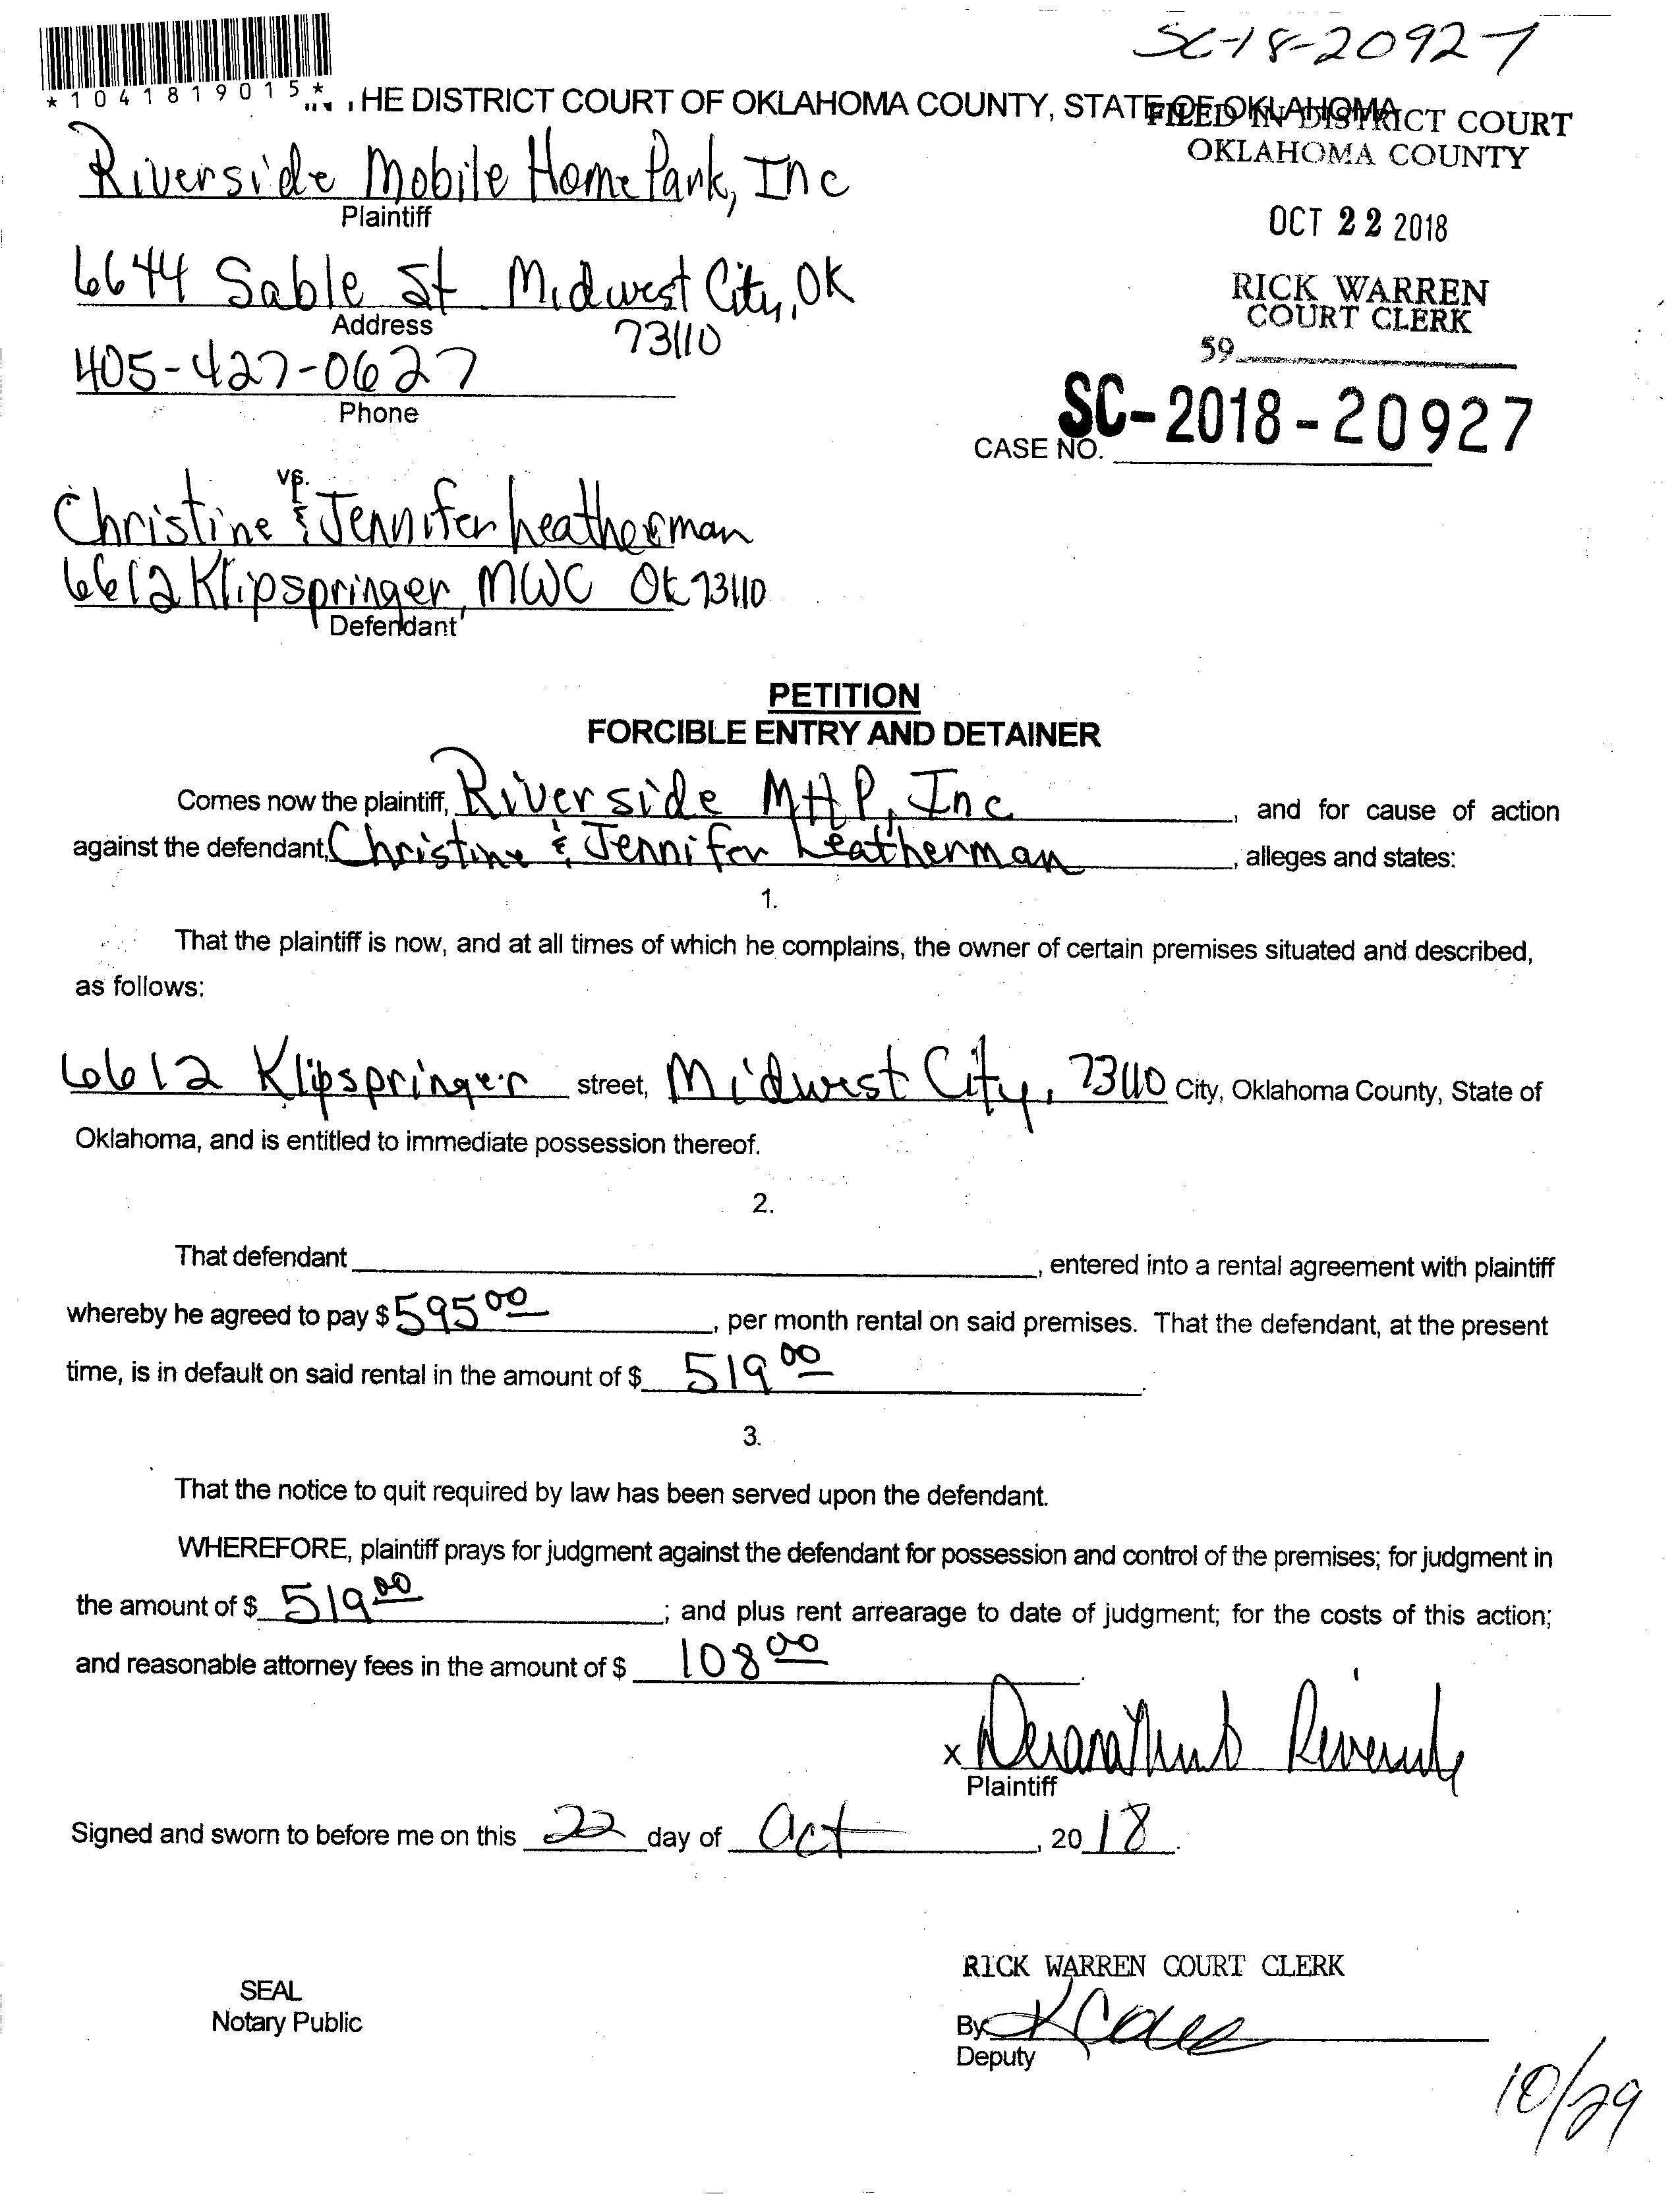 SC-18-20927
*1041819015*
HE DISTRICT COURT OF OKLAHOMA COUNTY, STATE OF OKLAHOMA
FILED IN DISTRICT COURT
OKLAHOMA COUNTY
Riverside Mobile Home Park, Inc
Plaintiff
OCT 22 2018
6644 Sable St Midwest City, OK
Address
73110
RICK WARREN
COURT CLERK
59
405-427-0627
Phone
CASE NO. SC-2018-20927
vs.
Christine & Jennifer Leatherman
6612 Klipspringer, MWC OK 73110
Defendant
PETITION
FORCIBLE ENTRY AND DETAINER
Comes now the plaintiff, Riverside MHP, Inc, and for cause of action
against the defendant, Christine & Jennifer Leatherman, alleges and states:
1.
That the plaintiff is now, and at all times of which he complains, the owner of certain premises situated and described,
as follows:
6612 Klipspringer street, Midwest City, 73110 City, Oklahoma County, State of
Oklahoma, and is entitled to immediate possession thereof.
2.
That defendant , entered into a rental agreement with plaintiff
whereby he agreed to pay $ 595 00, per month rental on said premises. That the defendant, at the present
time, is in default on said rental in the amount of $ 519 00.
3.
That the notice to quit required by law has been served upon the defendant.
WHEREFORE, plaintiff prays for judgment against the defendant for possession and control of the premises; for judgment in
the amount of $ 519 00; and plus rent arrearage to date of judgment; for the costs of this action;
and reasonable attorney fees in the amount of $ 108 00.
x
Plaintiff
Signed and sworn to before me on this 22 day of Oct, 2018.
RICK WARREN COURT CLERK
SEAL
Notary Public
By
Deputy
10/29